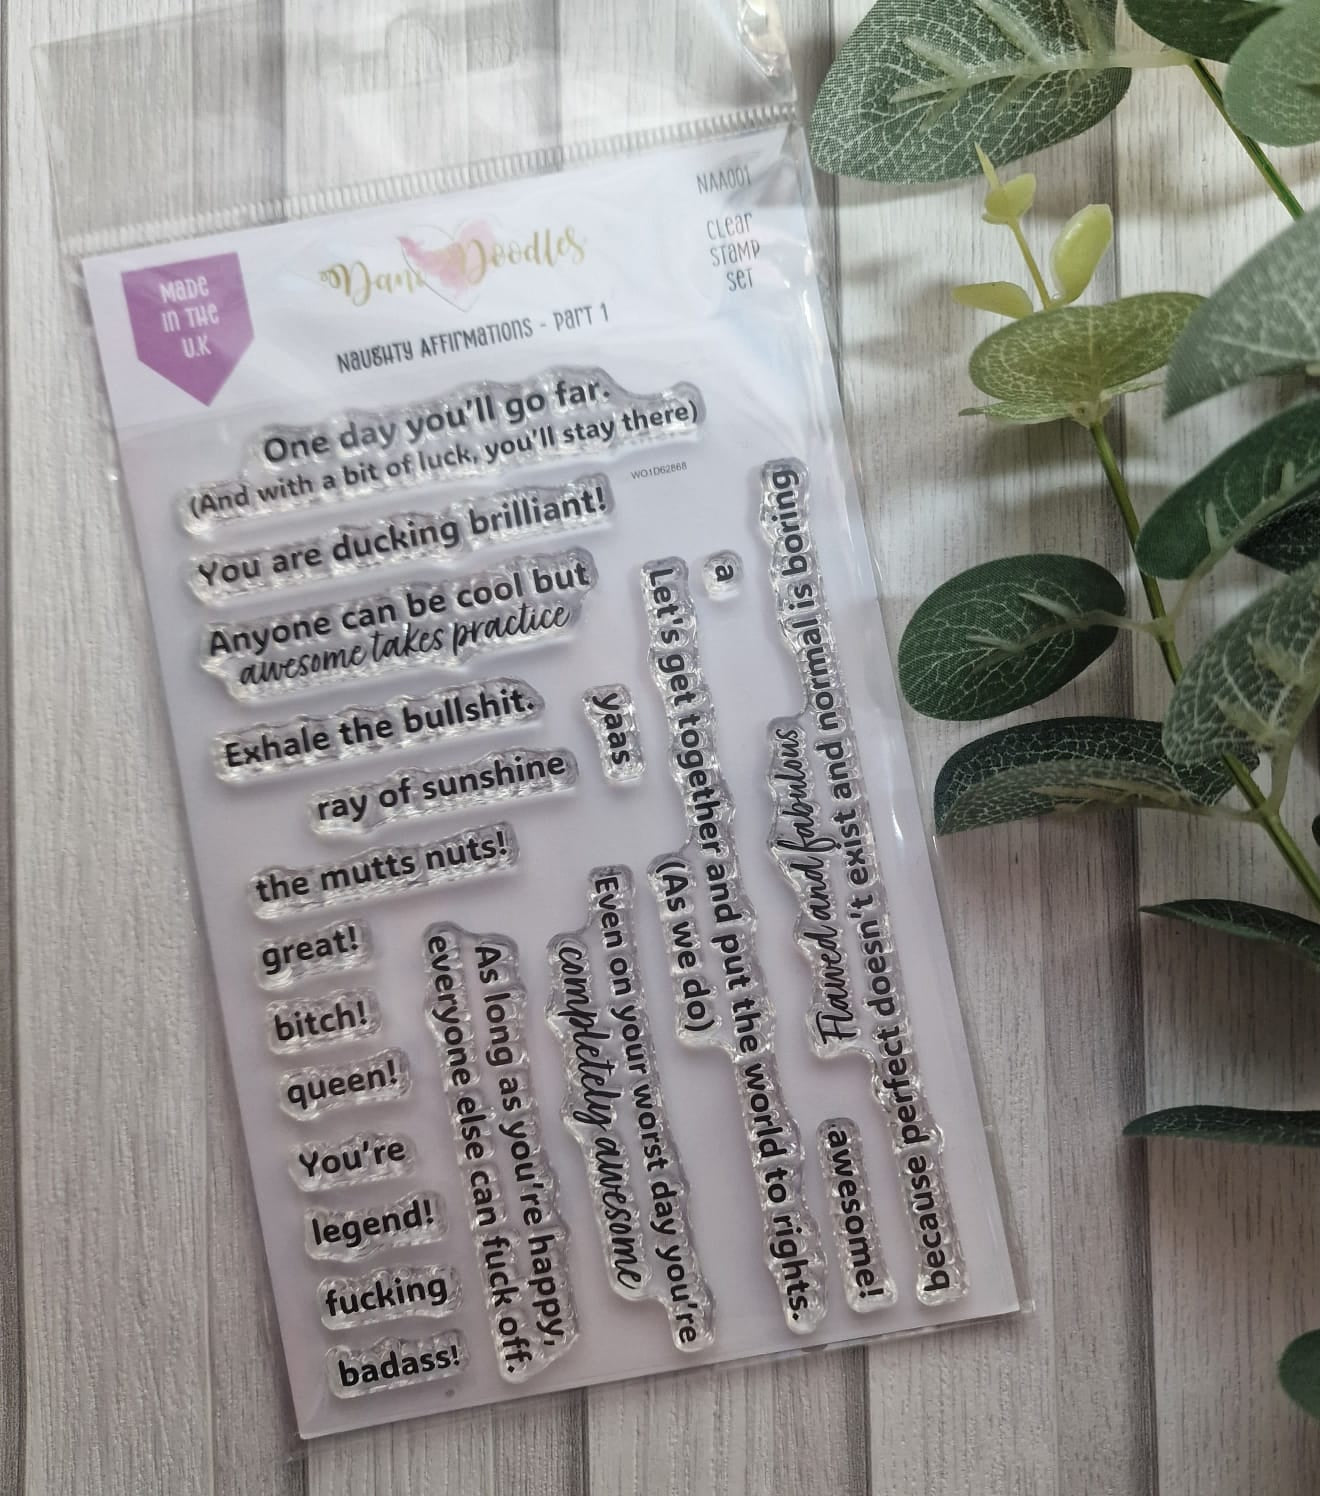 NAA001
CLEAR
STAMP
SET
MADE
IN THE
U.K
Dani Doodles
NAUGHTY AFFIRMATIONS - PART 1
One day you'll go far.
(And with a bit of luck, you'll stay there)
WO1D62868
You are ducking brilliant!
Anyone can be cool but
awesome takes practice
Exhale the bullshit.
ray of sunshine
the mutts nuts!
great!
bitch!
queen!
You're
legend!
fucking
badass!
yaas
a
As long as you're happy,
everyone else can fuck off.
Even on your worst day you're
completely awesome
Let's get together and put the world to rights.
(As we do)
Flawed and fabulous
because perfect doesn't exist and normal is boring
awesome!